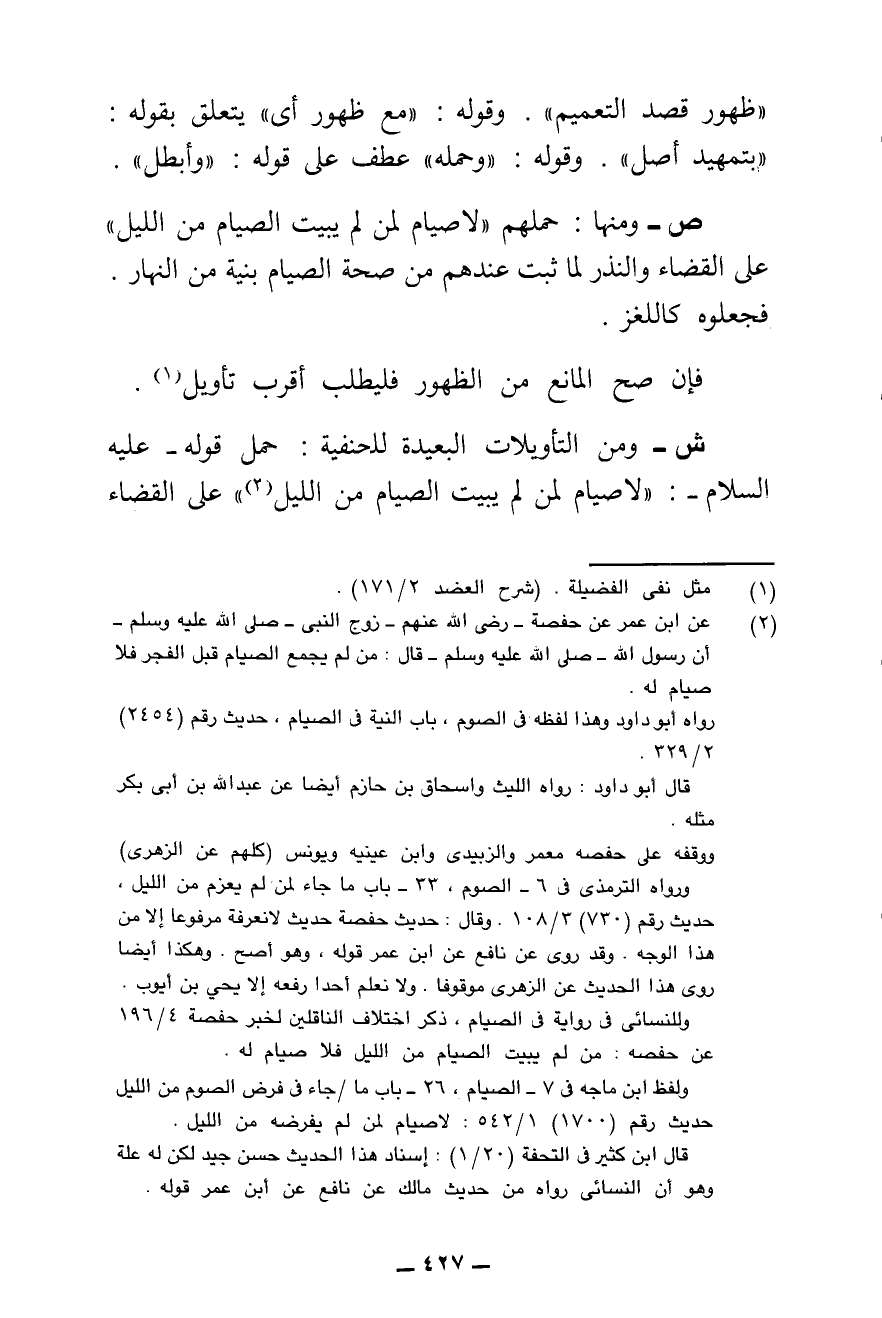 «ظهور قصد التعميم» . وقوله : «مع ظهور أى» يتعلق بقوله :
«بتمهيد أصل» . وقوله : «وحمله» عطف على قوله : «وأبطل» .
ص ـ ومنها : حملهم «لاصيام لمن لم يبيت الصيام من الليل»
على القضاء والنذر لما ثبت عندهم من صحة الصيام بنية من النهار .
فجعلوه كاللغز .
فإن صح المانع من الظهور فليطلب أقرب تأويل(١) .
ش ـ ومن التأويلات البعيدة للحنفية : حمل قوله ـ عليه
السلام ـ : «لاصيام لمن لم يبيت الصيام من الليل(٢)» على القضاء
(١) مثل نفى الفضيلة . (شرح العضد ١٧١/٢) .
(٢) عن ابن عمر عن حفصة ـ رضى الله عنهم ـ زوج النبى ـ صلى الله عليه وسلم ـ
أن رسول الله ـ صلى الله عليه وسلم ـ قال : من لم يجمع الصيام قبل الفجر فلا
صيام له .
رواه أبو داود وهذا لفظه فى الصوم ، باب النية فى الصيام ، حديث رقم (٢٤٥٤)
٣٢٩/٢ .
قال أبو داود : رواه الليث واسحاق بن حازم أيضا عن عبدالله بن أبى بكر
مثله .
ووقفه على حفصه معمر والزبيدى وابن عينيه ويونس (كلهم عن الزهرى)
ورواه الترمذى فى ٦ ـ الصوم ، ٣٣ ـ باب ما جاء لمن لم يعزم من الليل ،
حديث رقم (٧٣٠) ١٠٨/٣ . وقال : حديث حفصة حديث لانعرفة مرفوعا إلا من
هذا الوجه . وقد روى عن نافع عن ابن عمر قوله ، وهو أصح . وهكذا أيضا
روى هذا الحديث عن الزهرى موقوفا . ولا نعلم أحدا رفعه إلا يحي بن أيوب .
وللنسائى فى رواية فى الصيام ، ذكر اختلاف الناقلين لخبر حفصة ١٩٦/٤
عن حفصه : من لم يبيت الصيام من الليل فلا صيام له .
ولفظ ابن ماجه فى ٧ ـ الصيام ، ٢٦ ـ باب ما /جاء فى فرض الصوم من الليل
حديث رقم (١٧٠٠) ٥٤٢/١ : لاصيام لمن لم يفرضه من الليل .
قال ابن كثير فى التحفة (١/٢٠) : إسناد هذا الحديث حسن جيد لكن له علة
وهو أن النسائى رواه من حديث مالك عن نافع عن أبن عمر قوله .
ـ ٤٢٧ ـ